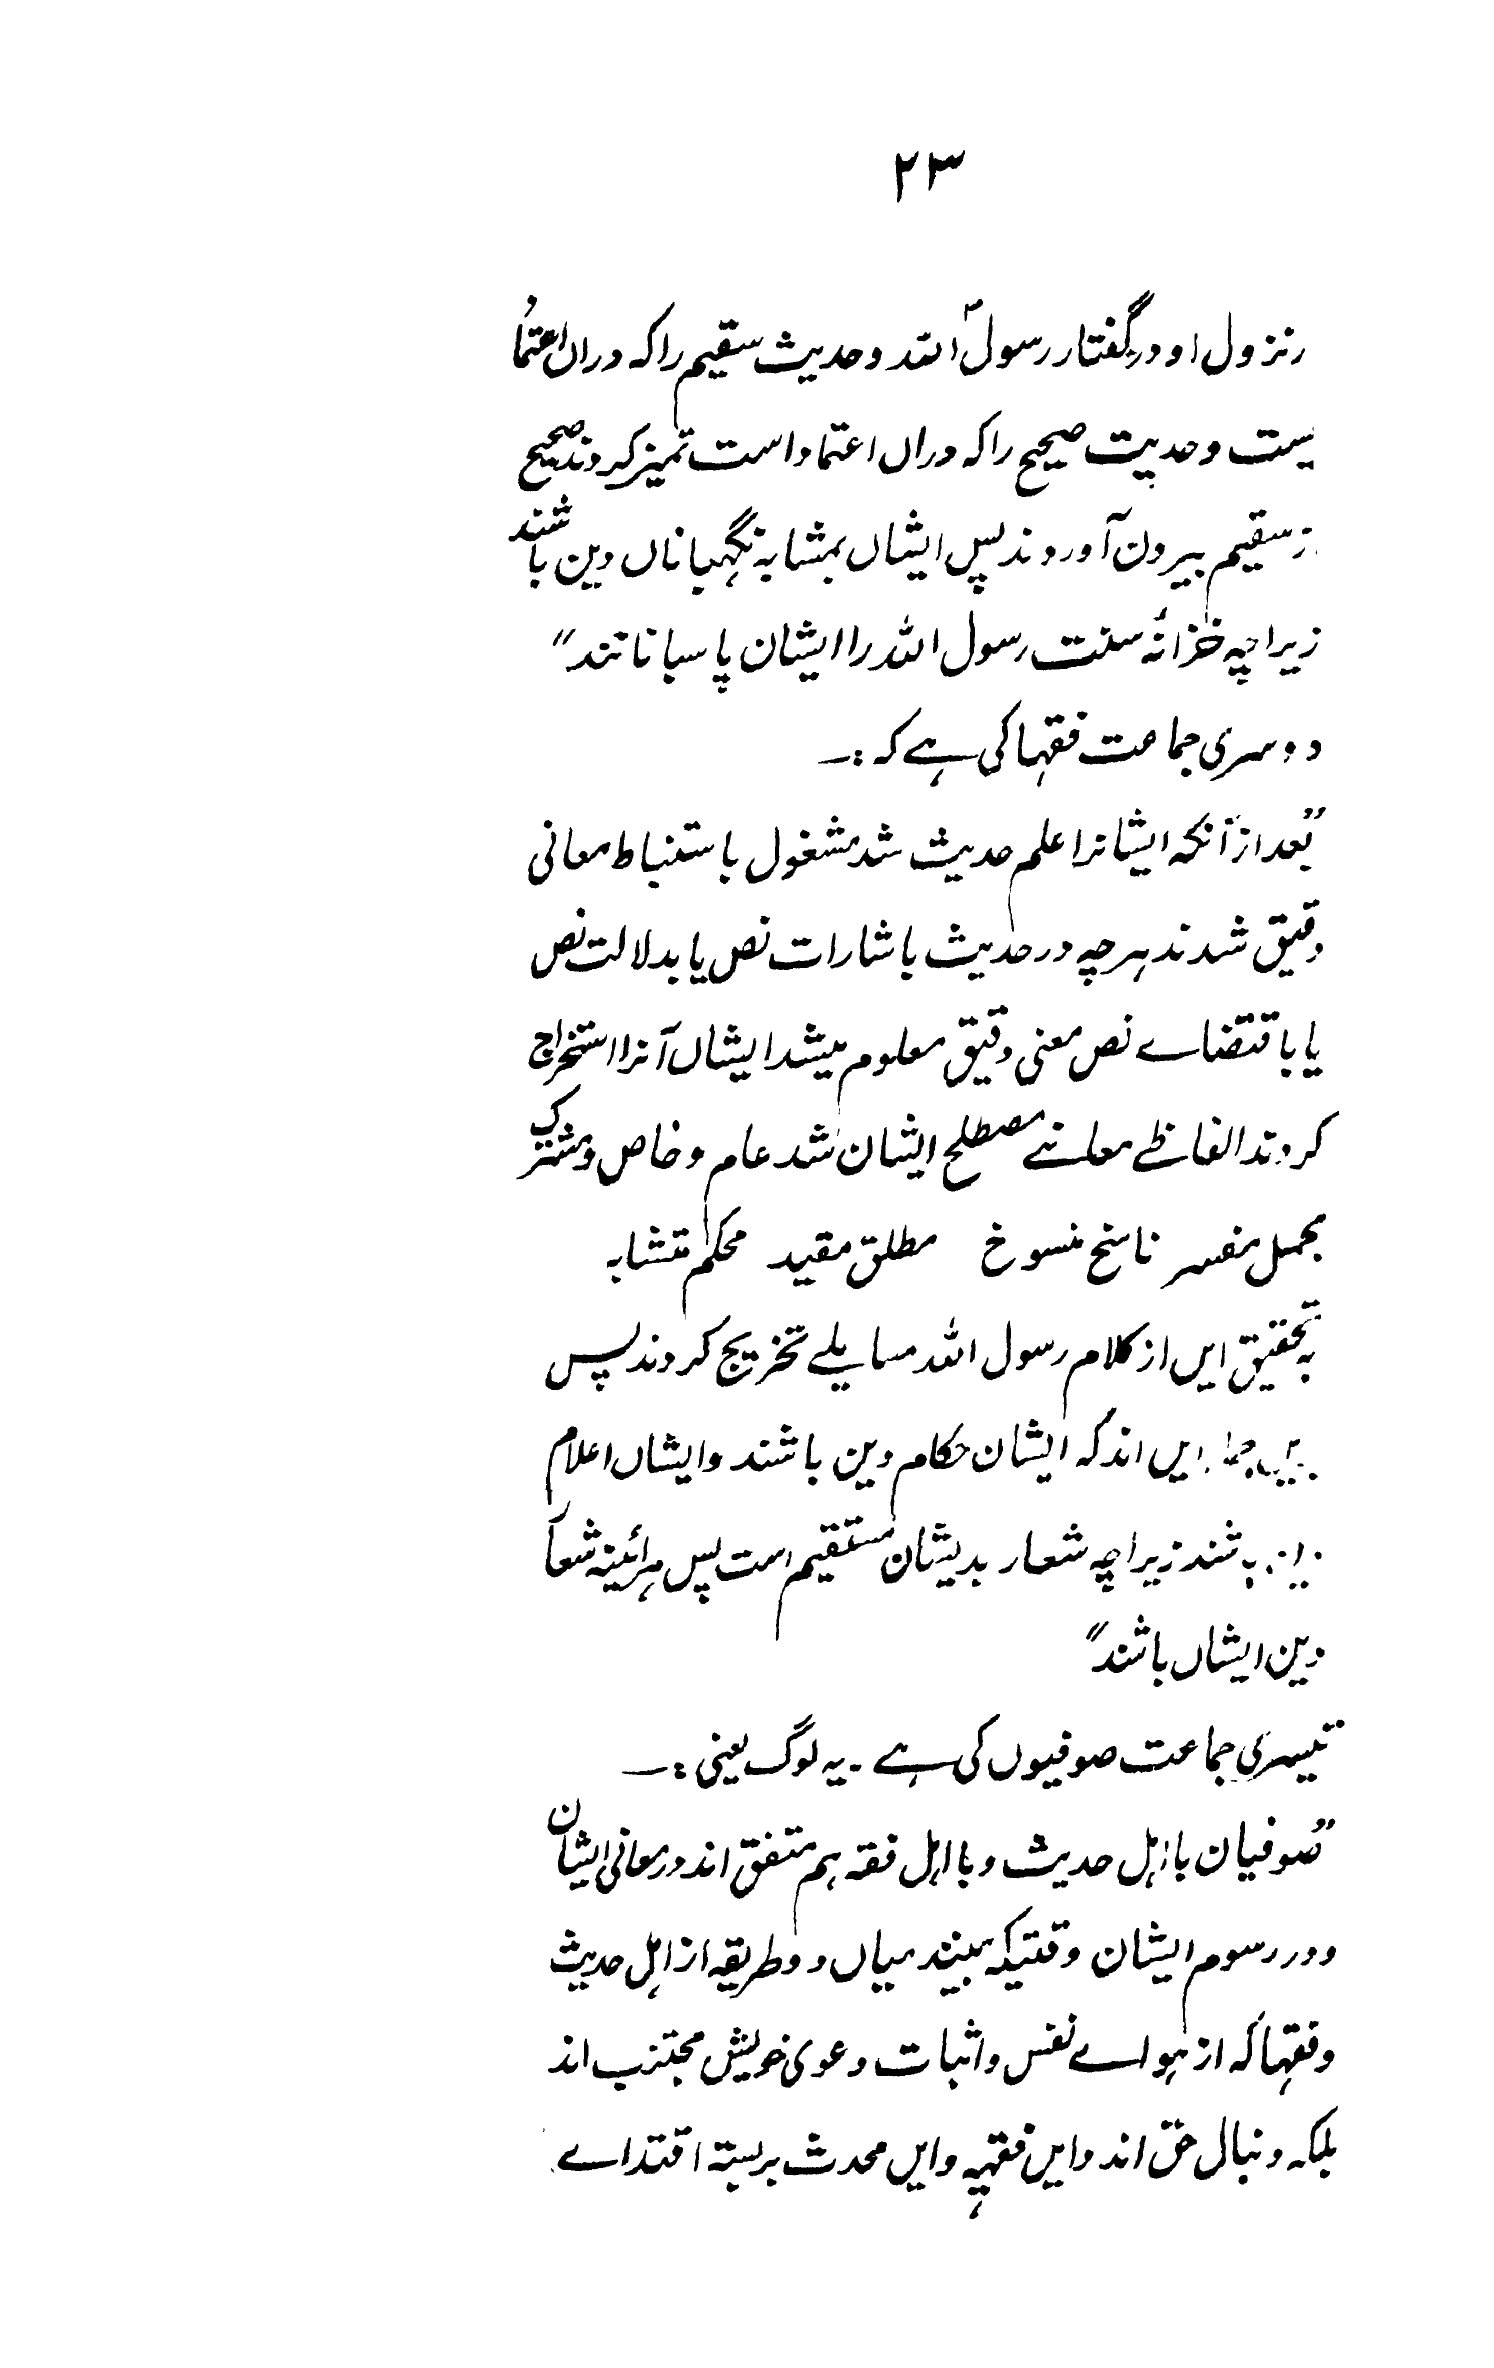 ۲۳
نزول او در گفتار رسولؐ اللہ و حدیث سقیم را کہ دراں اعتماد
یست و حدیث صحیح را کہ دراں اعتماد است تمیز کردند صحیح
ز سقیم بیرون آوردند پس ایشاں بمثابہ نگہباناں دین باشند
زیراچہ خزانۂ سنت رسول اللہ را ایشان پاسبانانند"
دوسری جماعت فقہا کی ہے کہ :۔
"بعد از آنکہ ایشانرا علم حدیث شد مشغول باستنباط معانی
دقیق شدند ہرچہ در حدیث باشارات نص یا بدلالت نص
یا باقتضاے نص معنی دقیق معلوم میشد ایشاں آنرا استخراج
کردند الفاظے معانئے مصطلح ایشان شد عام و خاص و مشترک
مجمل مفسر ناسخ منسوخ مطلق مقید محکم متشابہ
بہ تحقیق ایں از کلام رسول اللہ مسایلے تخریج کردند پس
ایں اند کہ ایشان حکام دین باشند و ایشاں اعلام
باشند زیراچہ شعار بدیشان مستقیم است پس ہرآئینہ شعآ
دین ایشاں باشند"
تیسری جماعت صوفیوں کی ہے ۔ یہ لوگ یعنی :۔
"صوفیان با اہل حدیث و با اہل فقہ ہم متفق اند در معانی ایشان
و در رسوم ایشان وقتیکہ ببیند میاں دو طریقہ از اہل حدیث
و فقہا کہ از ہواے نفس و اثبات دعوی خویش مجتنب اند
بلکہ دنبال حق اند و ایں فقہیہ و ایں محدث بربستہ اقتداے